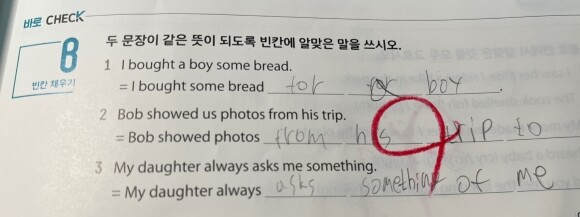 바로 CHECK
B 두 문장이 같은 뜻이 되도록 빈칸에 알맞은 말을 쓰시오.
빈칸 채우기
1 I bought a boy some bread.
= I bought some bread for a boy.
2 Bob showed us photos from his trip.
= Bob showed photos from his trip to
3 My daughter always asks me something.
= My daughter always asks something of me